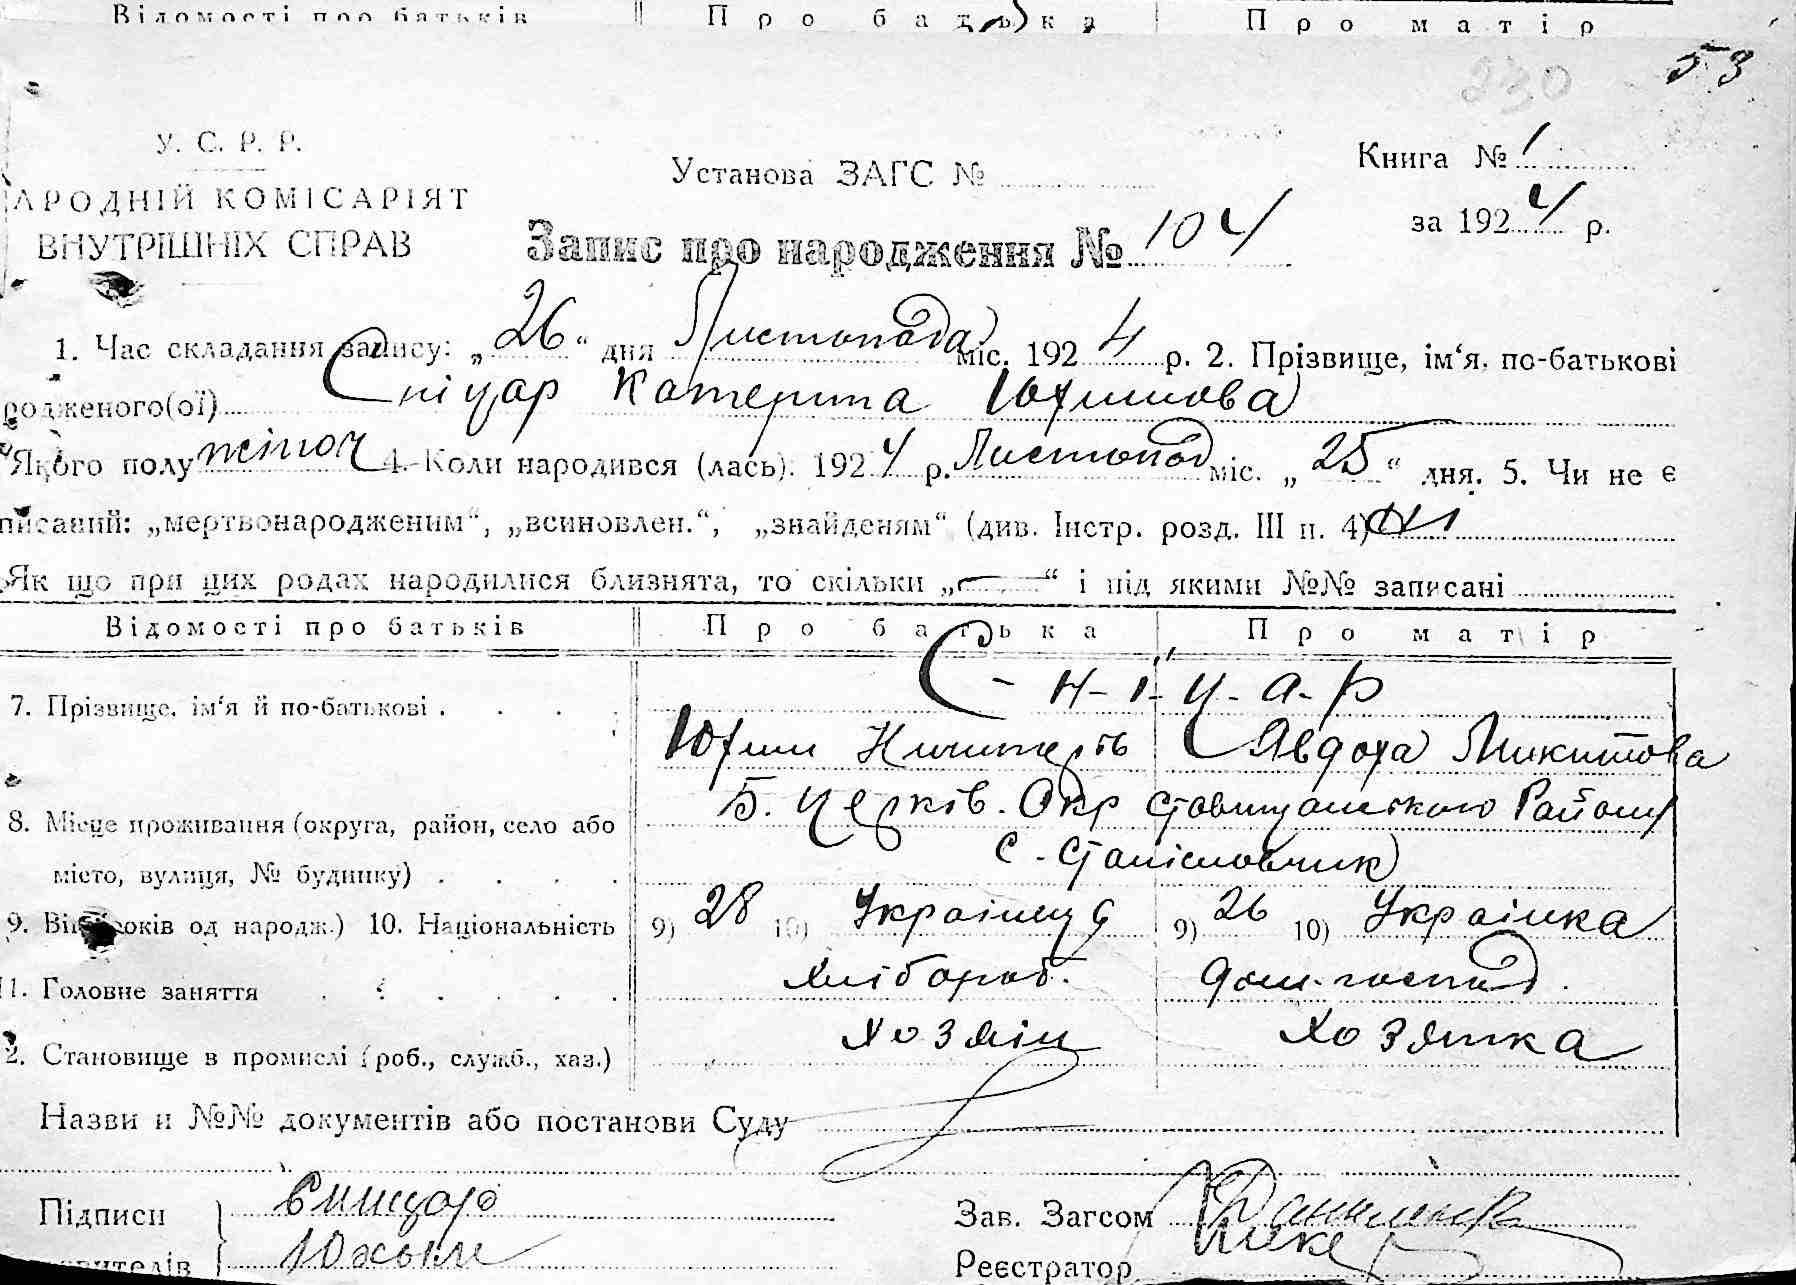 Відомості про батьків Про батька Про матір
53
230
У. С. Р. Р.
АРОДНІЙ КОМІСАРІЯТ
ВНУТРІШНІХ СПРАВ
Установа ЗАГС №
Книга № 1
за 1924 р.
Запис про народження № 104
1. Час складання запису: „26“ дня Листопада міс. 1924 р. 2. Прізвище, ім‘я, по-батькові
родженого(ої) Сніцар Катерина Юхимова
Якого полу жіноч 4. Коли народився (лась): 1924 р. Листопад міс. „25“ дня. 5. Чи не є
писаний: „мертвонародженим“, „всиновлен.“, „знайденям“ (див. Інстр. розд. III п. 4) Ні
Як що при цих родах народилися близнята, то скільки „—“ і під якими №№ записані
Відомості про батьків Про батька Про матір
7. Прізвище, ім‘я й по-батькові . С-н-і-ц-а-р
Юхим Явдоха Микитова
8. Місце проживання (округа, район, село або Б. Церків. Окр Ставищанського Району
місто, вулиця, № будинку) . с. Станіславчик
9. Вік років од народж.) 10. Національність 9) 28 10) Українець 9) 26 10) Українка
11. Головне заняття Хлібороб. дом. господ.
2. Становище в промислі (роб., служб., хаз.) Хозяїн Хозяйка
Назви и №№ документів або постанови Суду
Підписи Сницар Зав. Загсом
явителів Юхым Реєстратор